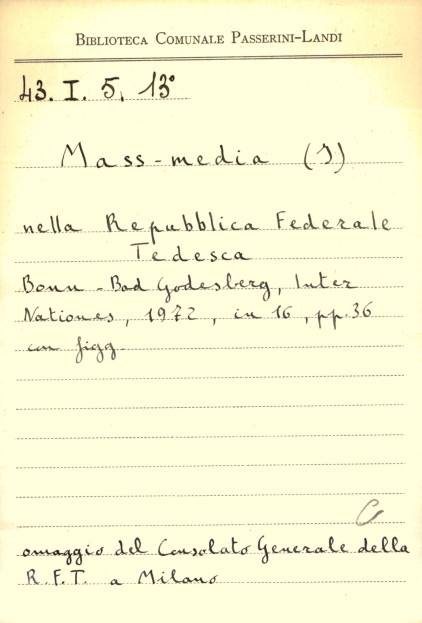 BIBLIOTECA COMUNALE PASSERINI-LANDI
43. I. 5, 13°
Mass-media (I)
nella Repubblica Federale
Tedesca
Bonn - Bad Godesberg, Inter
Nationes, 1972, in 16, pp. 36
con figg.
C
omaggio del Consolato Generale della
R.F.T. a Milano